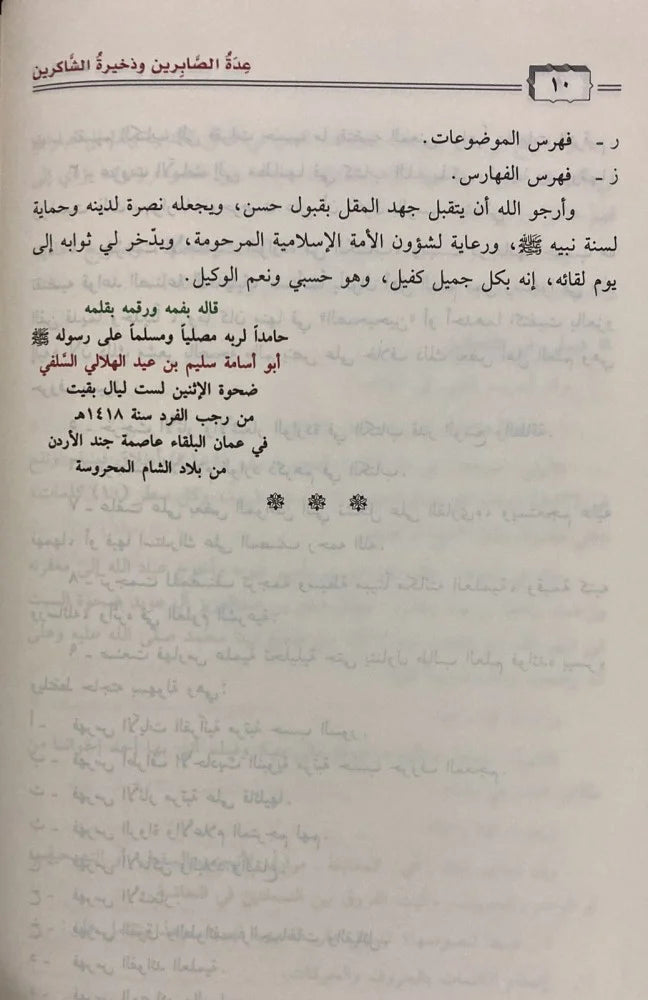 عِدَةُ الصَّابِرين وذخيرةُ الشَّاكرين
١٠
ر - فهرس الموضوعات.
ز - فهرس الفهارس.
وأرجو الله أن يتقبل جهد المقل بقبول حسن، ويجعله نصرة لدينه وحماية
لسنة نبيه ﷺ، ورعاية لشؤون الأمة الإسلامية المرحومة، ويدّخر لي ثوابه إلى
يوم لقائه، إنه بكل جميل كفيل، وهو حسبي ونعم الوكيل.
قاله بفمه ورقمه بقلمه
حامداً لربه مصلياً ومسلماً على رسوله ﷺ
أبو أسامة سليم بن عيد الهلالي السَّلفي
ضحوة الإثنين لست ليال بقيت
من رجب الفرد سنة ١٤١٨هـ
في عمان البلقاء عاصمة جند الأردن
من بلاد الشام المحروسة